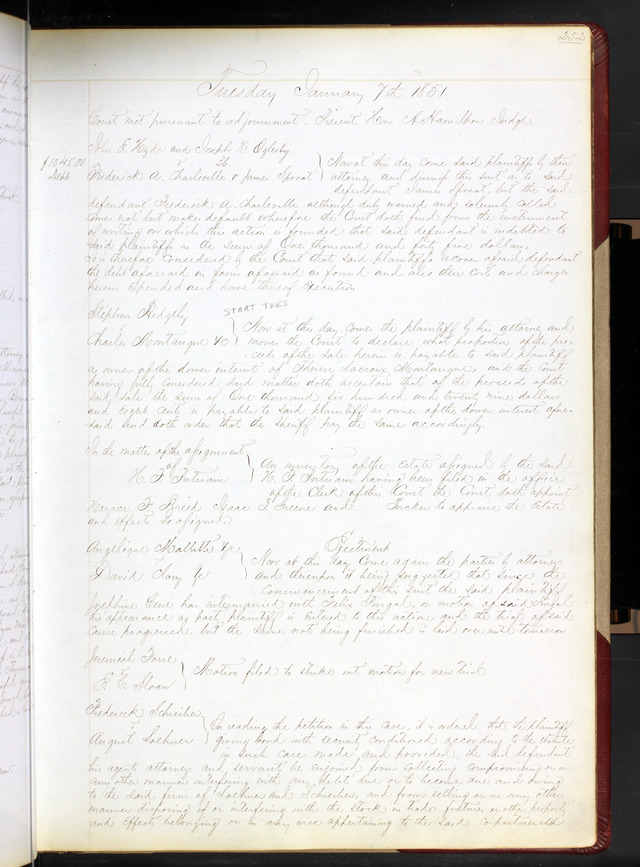 252
Tuesday January 7th 1851
Court met pursuant to adjournment. Present Hon A Hamilton Judge
John E. Hyde and Joseph W. Oglesby
$1045.00 vs Now at this day come said plaintiffs by their
Debt Frederick A. Charleville & James attorney and dismiss this suit as to said
defendant James but the said
defendant Frederick A. Charleville although duly warned and solemnly called
come not but makes default wherefore the Court doth find from the instrument
of writing on which this action is founded that said defendant is indebted to
said plaintiffs in the sum of One thousand and forty five dollars.
It is therefore Considered by the Court that said plaintiffs recover of said defendant
the debt aforesaid in form aforesaid as found and also their costs and charges
herein expended and have thereof execution
START TUES
Stephen Ridgely
vs Now at this day comes the plaintiff by his attorney and
Charles Montaigne &c moves the Court to declare what proportion of the pro-
ceeds of the sale herein is payable to said plaintiff
as owner of the dower interest of Lacroix Montaigne, and the Court
having fully considered said matter doth ascertain that of the proceeds of the
said sale the sum of One thousand six hundred and twenty nine dollars
and eight cents is payable to said plaintiff as owner of the dower interest afore-
said and doth order that the Sheriff pay the same accordingly.
In the matter of the assignment
of An inventory of the estate assigned by the said
H. F. Putnam H. F. Putnam having been filed in the office
of the Clerk of this Court the Court doth appoint
Horace F. Breed Isaac T. Greene and Tucker to appraise the Estate
and effects so assigned
Angelique Mallette &c Ejectment
vs Now at this day come again the parties by attorney
David &c and thereupon it being suggested that since the
Commencement of this suit the said plaintiff
Josephine Gene has intermarried with Felix on motion of said
his appearance as party plaintiff is entered to this action and the trial of said
cause progressed but the same not being finished is laid over until tomorrow
Jeremiah
vs Motion filed to strike out motion for new trial
E. E. Sloan
Frederick Schreiber
vs On reading the petition in this case, it is ordered that the plaintiff
August Lochner giving bond with security conditioned according to the statute
in such case made and provided, the said defendant
his agents attorney and servants be enjoined from collecting compromising or in
any other manner interfering with any debt due or to become due and owing
to the said firm of Lochner and Schreiber, and from selling or in any other
manner disposing of or interfering with the stock in trade fixtures or other property
and effects belonging or in any wise appertaining to the said copartnership